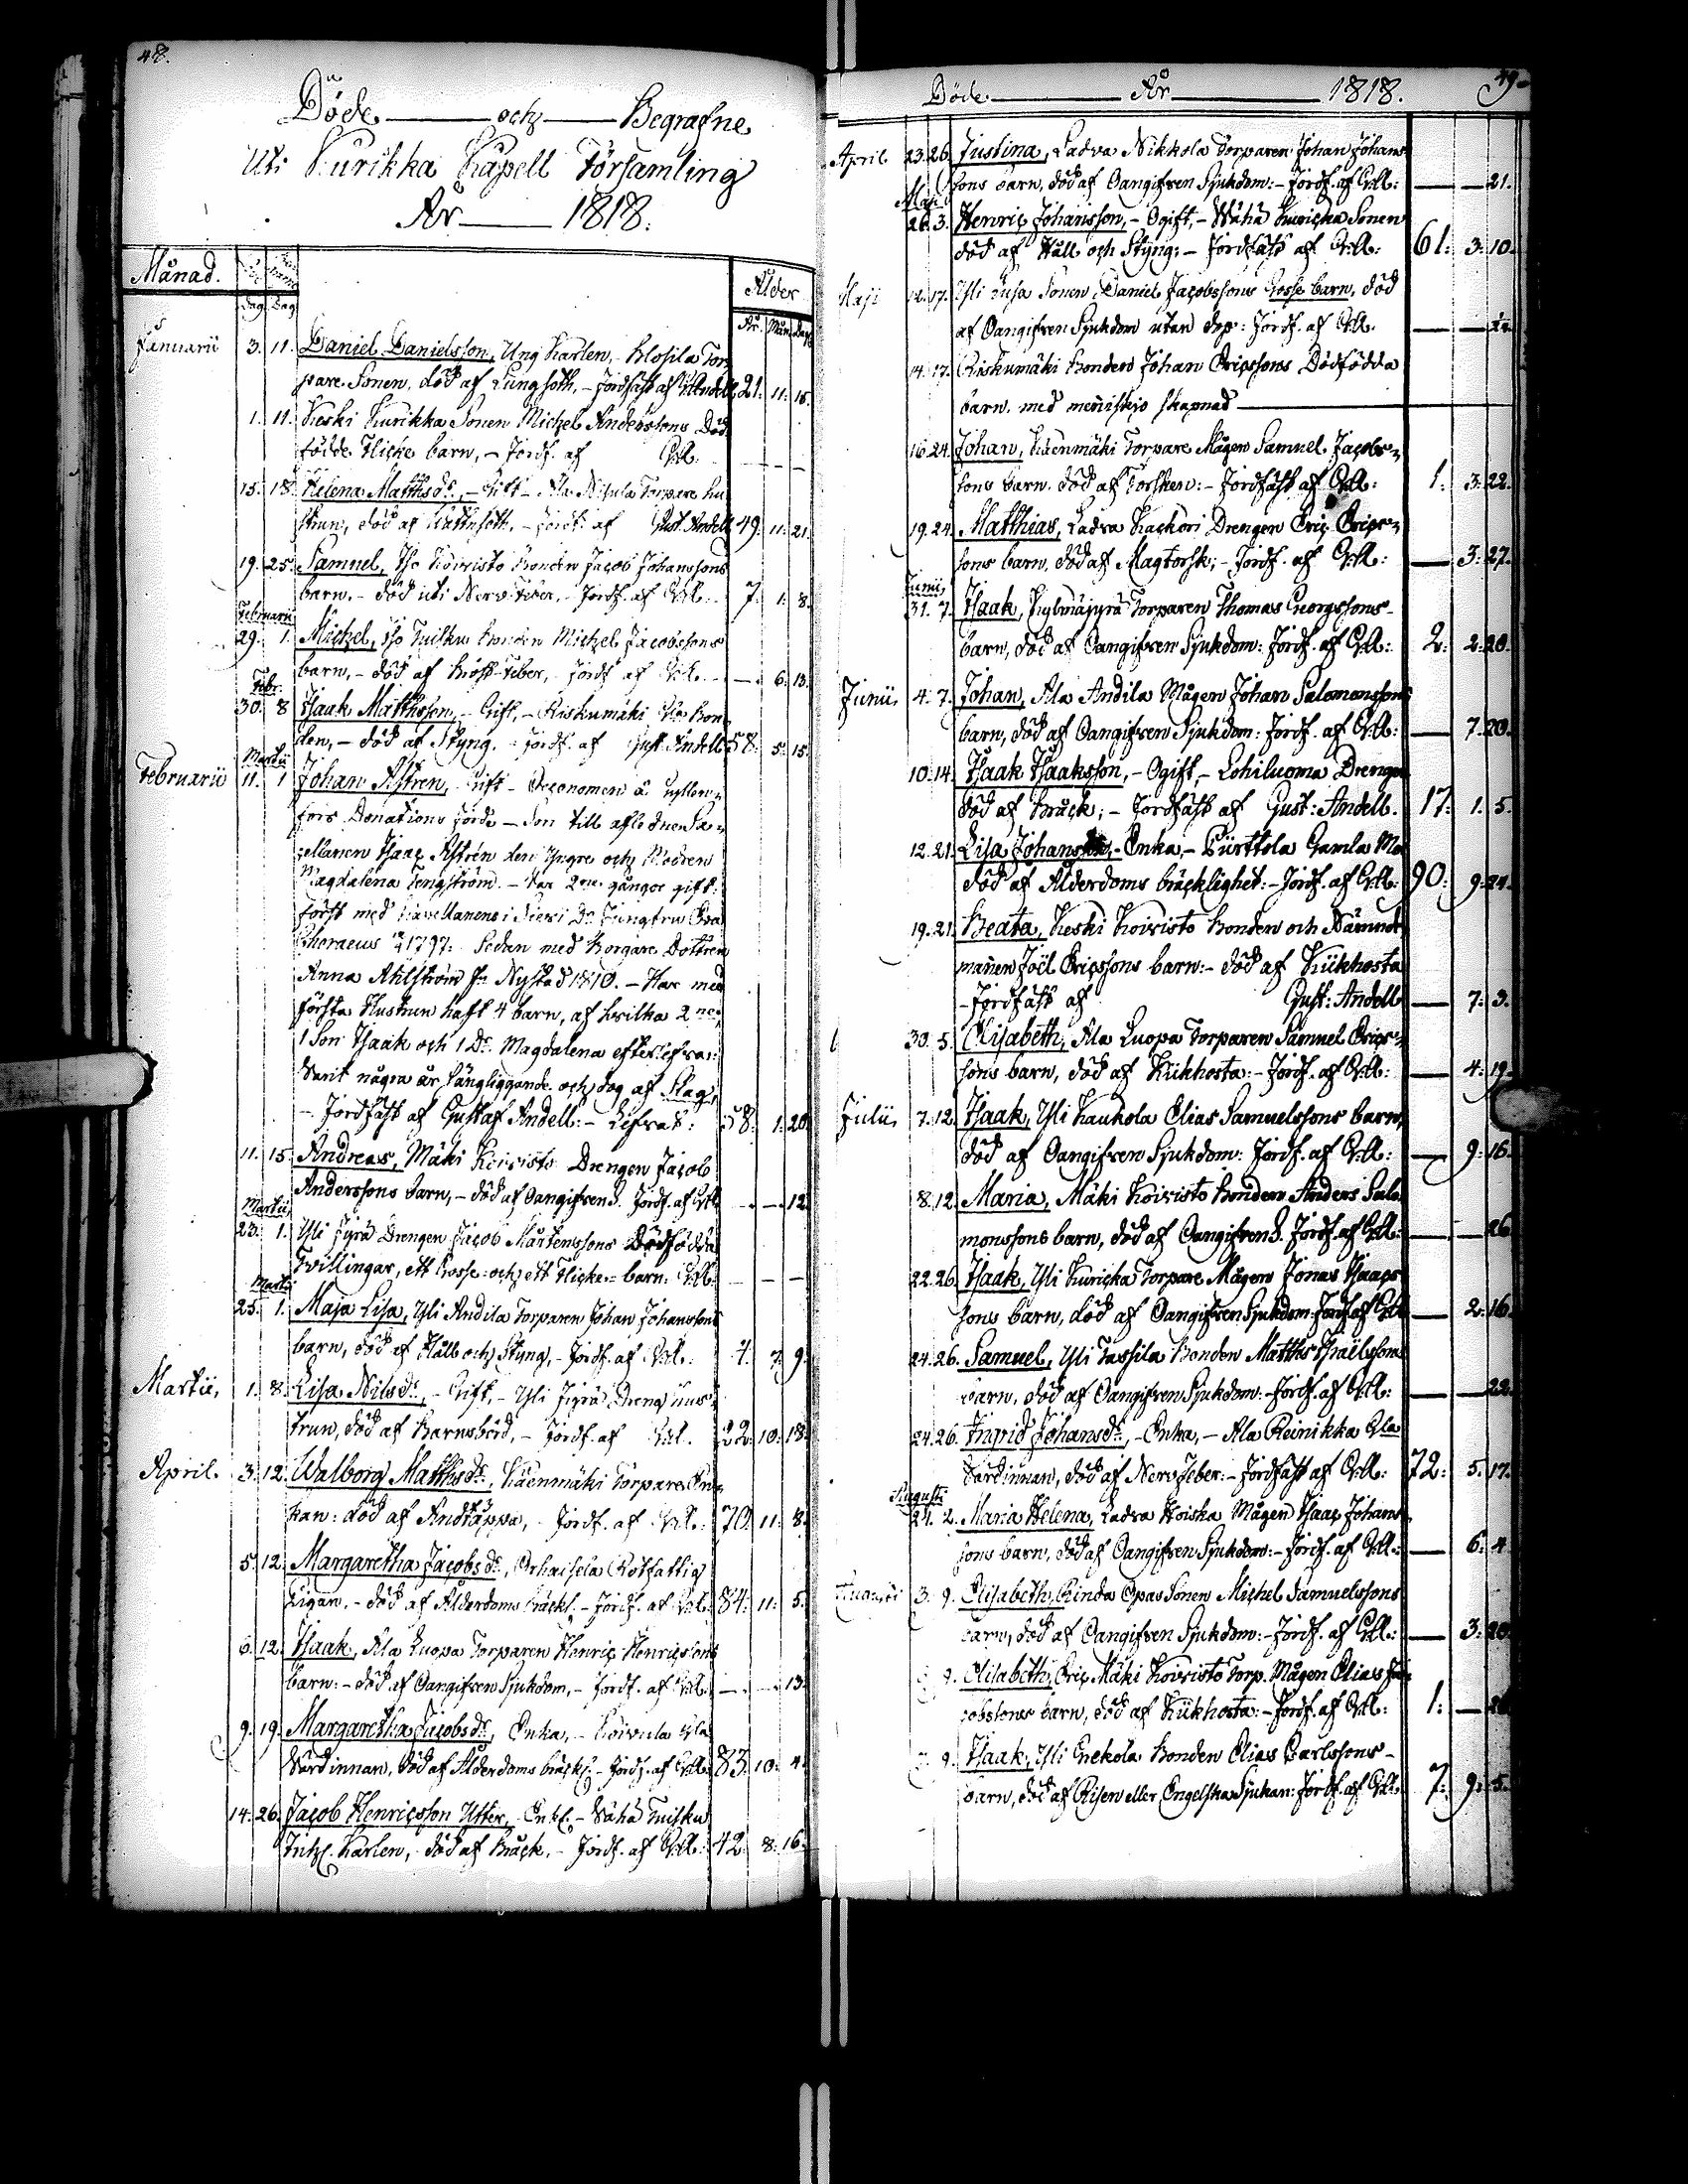 48.
Döde — och — Begrafne
Uti Kurikka Capell Församling
År — 1818.
Månad.
Dag Dag
Ålder
År. Mån. Dag
Januarii 3. 11. Daniel Danielsson, Ung Karlen, Klosila Tor-
pare Sonen, död af Lungsoth, - Jordfäst af G: Andell 21: 11: 15.
1. 11. Keski Kurikka Sonen Michel Anderssons Död
födde Flicke barn, - Jordf. af G:ll. - - -
15. 18. Helena Matthsdr, - Gift - Ala Nisula Torpare hu
strun, död af Wattusoth, - Jordf. af Gust. Andell 49: 11: 21.
19. 25. Samuel, Iso Koivisto Bonden Jacob Johanssons
barn, - död uti Nerv-Feber, - Jordf. af G:ll. 7. 1. 8.
Februarii
29. 1. Michel, Iso Tuisku Bonden Michel Jacobssons
barn, - död af Bröst-Feber, - Jordf. af G:ll. - 6. 13.
Febr.
30. 8 Isaak Matthsson, - Gift, - Riskumäki Bon-
den, - död af Styng. - Jordf. af Gust. Andell 58: 5. 15.
Martii
Februarii 11. 1 Johan Astren, Gift - Oeconomen å Gyllen-
fors Donations Jorde - Son till aflednen Ca-
pellanen Isaac Astrén den Yngre och Modren
Magdalena Tengström. - Var 2ne gångor gift:
först med Capellanens i Dr Jungfru Eva
Choraeus 1797: Sedan med Borgare Dottren
Anna Ahlström fr. Nystad 1810. - Har med
första Hustrun haft 4 barn, af hvilka 2ne,
1 Son Isaak och 1 Dr. Magdalena efterlefva:
Varit några år sängliggande och dog af Slag,
- Jordfäst af Gustaf Andell: - Lefvat: 58: 1: 20
11. 15. Andreas, Mäki Koivisto Drengen Jacob
Anderssons barn, - död af Oangifven S. Jordf. af G:ll - - 12
Martii,
23. 1. Yli Jyrä Drengen Jacob Mårtenssons Dödfödda
Tvillingar, ett Gosse- och ett Flicke-barn. G:ll. - - -
Martii
25. 1. Maja Lisa, Yli Andila Torparen Johan Johanssons
barn, död af Håll och Styng, - Jordf. af G:ll. 4. 7. 9.
Martii, 1. 8. Lisa Nilsdr, - Gift, - Yli Jyrä Dreng hus-
trun, död af Barnsbörd, - Jordf. af G:ll. 22. 10. 18.
April. 3. 12. Walborg Matthsdr, Käenmäki Torpare En-
kan: död af Andtäppa, - Jordf. af G:ll. 70. 11. 8.
5. 12. Margaretha Jacobsdr, Rotfattig
Pigan, - död af Ålderdoms bräckl. - Jordf. af G:ll. 84. 11. 5.
6. 12. Isaak, Ala Luopa Torparen Henric Henricsons
barn: - död af Oangifven Sjukdom, - Jordf. af G:ll. - - 13.
9. 19. Margaretha Jacobsdr, Enka, - Koivula Gla
Värdinnan, död af Ålderdoms bräckl. - Jordf. af G:ll. 83. 10. 4.
14. 26. Jacob Henricsson Utter, Enkl. - Wähä Tuisku
Karlen, död af Bråck, - Jordf. af G:ll. 42. 8. 16.
Döde — År — 1818. 49
April 23. 26. Justina, Ladva Nikkola Torparen Johan Johans-
sons barn, död af Oangifven Sjukdom: - Jordf. af G:ll: - - 21.
Maji
26. 3. Henric Johansson, - Ogift, - Wähä Kuricka Sonen
död af Håll och Styng: - Jordfäst af G:ll: 61: 3: 10.
Maji 12. 17. Yli Jusa Sonen Daniel Jacobssons Gosse barn, död
af Oangifven Sjukdom utan dop: Jordf. af G:ll.
14. 17. Riskumäki Bonden Johan Ericssons Dödfödda
barn, med menniskjo skapnad —
16. 24. Johan, Käenmäki Torpare Mågen Samuel Jacobs-
sons barn, död af Torsken: - Jordfäst af G:ll: 1. 3: 22.
19. 24. Matthias, Ladva Kackori Drengen Eric Erics-
sons barn, död af Magtorsk; - Jordf. af G:ll: - 3: 27.
Junii,
31. 7. Isaak, Kylmäjyrä Torparen Thomas Georgssons
barn, död af Oangifven Sjukdom: Jordf. af G:ll: 2. 2. 20.
Junii, 4. 7. Johan, Ala Andila Mågen Johan Salomonssons
barn, död af Oangifven Sjukdom: Jordf. af G:ll: - 7. 20.
10. 14. Isaak Isaaksson, - Ogift, - Lohiluoma Drengen
död af Bråck; - Jordfäst af Gust: Andell. 17. 1. 5.
12. 21. Lisa Johansdr, - Enka, - Piirttola Gamla Mo
död af Ålderdoms bräcklighet: - Jordf. af G:ll: 90: 9: 24.
19. 21. Beata, Keski Koivisto Bonden och Nämnde
mannen Joël Ericssons barn: - död af Kikhosta
- Jordfäst af Gust: Andell - 7: 3.
30. 5. Elisabeth, Ala Luopa Torparen Samuel Erics-
sons barn, död af Kikhosta: - Jordf. af G:ll: - 4: 19.
Julii, 7. 12. Isaak, Yli Kaukola Elias Samuelssons barn,
död af Oangifven Sjukdom: Jordf. af G:ll: - 9: 16.
8. 12. Maria, Mäki Koivisto Bonden Anders Salo
monssons barn, död af Oangifven S. Jordf. af G:ll: - - 26
22. 26. Isaak, Yli Kuricka Torpare Mågen Jonas Isaacs
sons barn, död af Oangifven Sjukdom Jordf. af G:ll - 2. 16.
24. 26. Samuel, Yli Tassila Bonden Matths Israëlssons
barn, död af Oangifven Sjukdom: - Jordf. af G:ll: - - 22.
24. 26. Ingrid Johansdr, - Enka, - Ala Reinikka Gla
Värdinnan, död af Nervfeber: - Jordfäst af G:ll: 72: 5. 17.
Augusti
24. 2. Maria Helena, Ladva Hoiska Mågen Isaac Johans-
sons barn, död af Oangifven Sjukdom: - Jordf. af G:ll. - 6: 4
Augusti 3. 9. Elisabeth, Rinda Opas Sonen Michel Samuelssons
barn, död af Oangifven Sjukdom: - Jordf. af G:ll: - 3: 20
9. Elisabeth, Mäki Koivisto Torp. Mågen Elias Ja-
cobssons barn, död af Kikhosta: - Jordf. af G:ll: 1: -
9. Isaak, Yli Enckola Bonden Elias Carlssons
barn, död af Risen eller Engelska Sjukan: Jordf. af G:ll. 7: 9: 5.